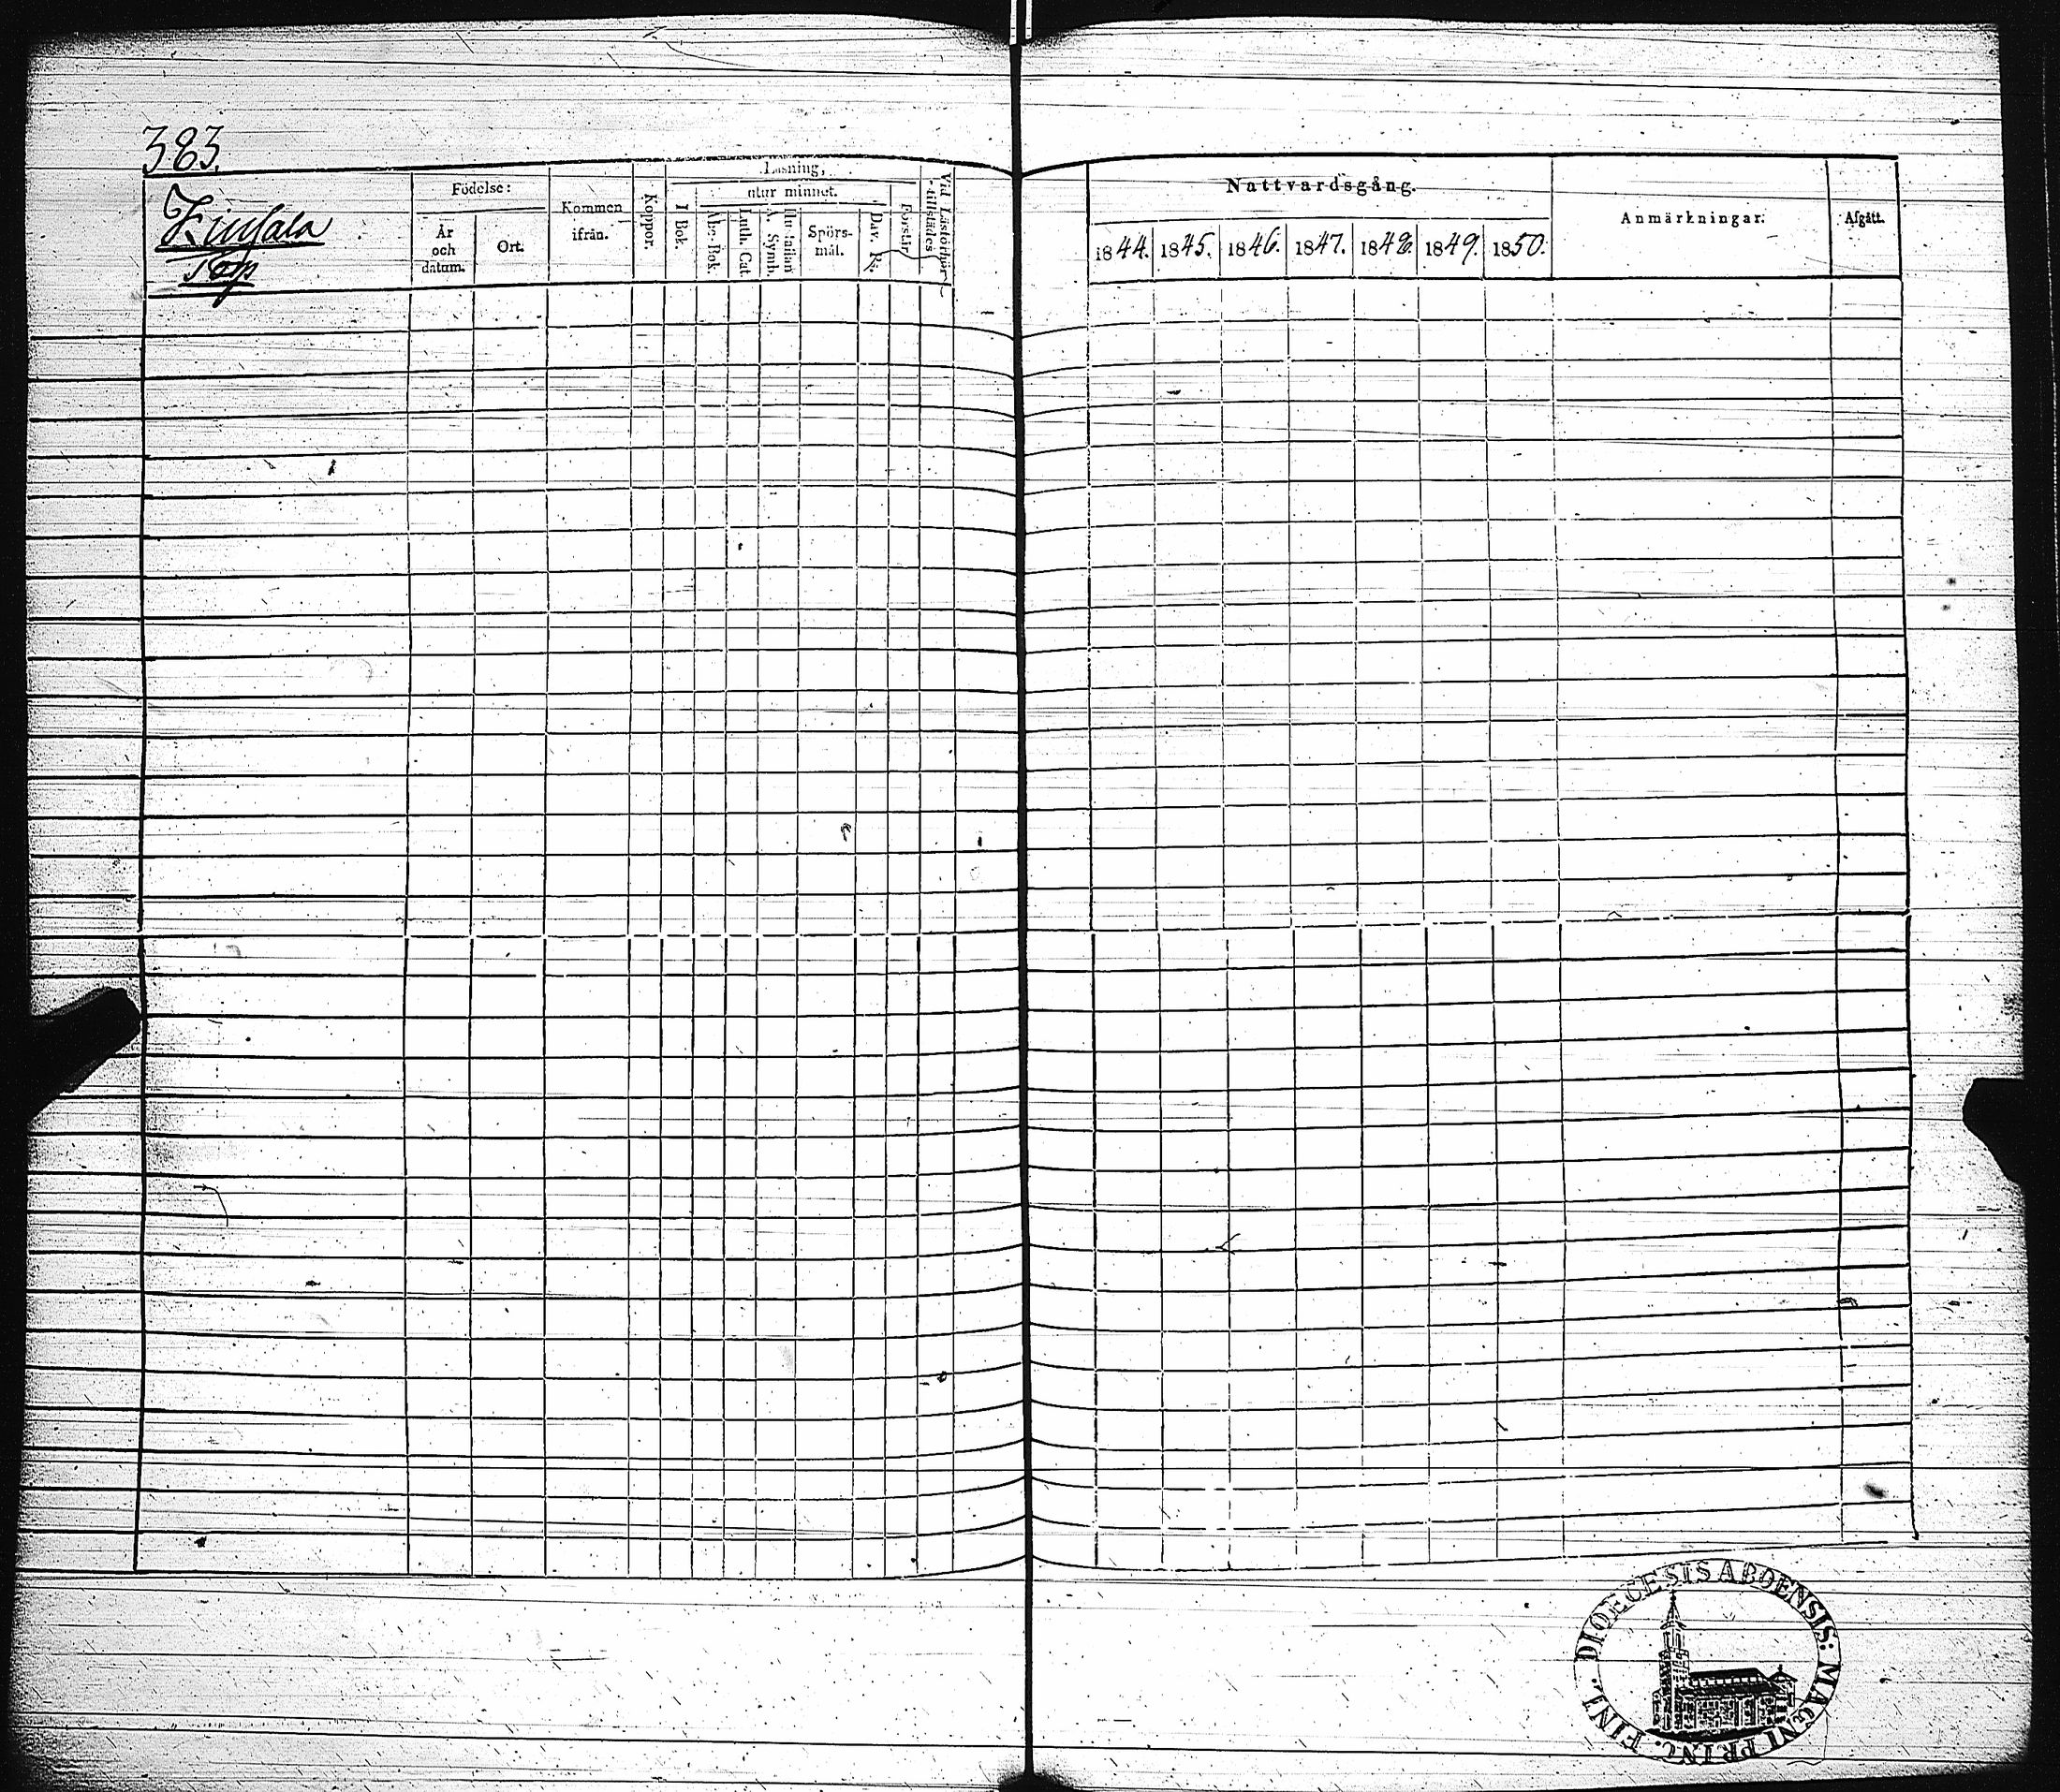 383.
Födelse:
År
och
datum.
Ort.
Kommen
ifrån.
Koppor.
Läsning,
I Bok.
utur minnet.
Abc-Bok.
Luth. Cat.
Hustaflan
A. Symb.
Spörs-
mål.
Dav. Ps.
Förstår.
Vid Läsförhör
tillstädes
Nattvardsgång.
1844. 1845. 1846. 1847. 1848. 1849. 1850.
Anmärkningar.
Afgått.
DIOECESIS ABOENSIS: MAGNI PRINC. FINL.